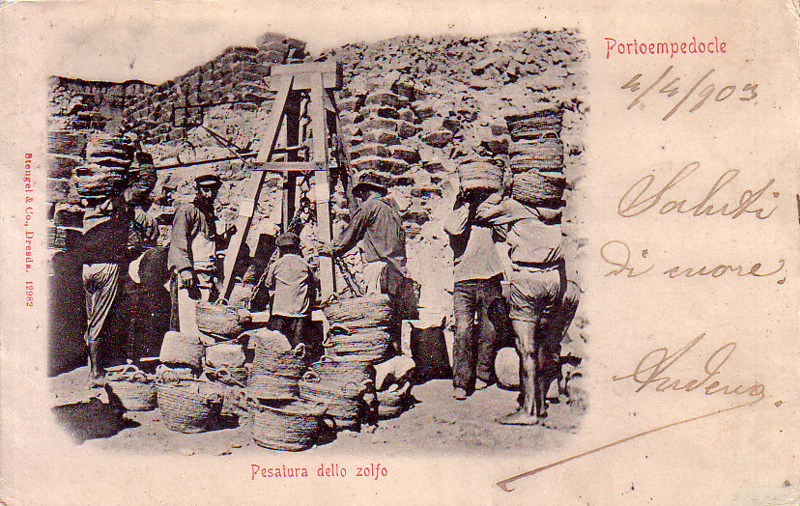 Portoempedocle
4/4/903
Saluti
di cuore.
Stengel & Co., Dresda. 12982
Pesatura dello zolfo